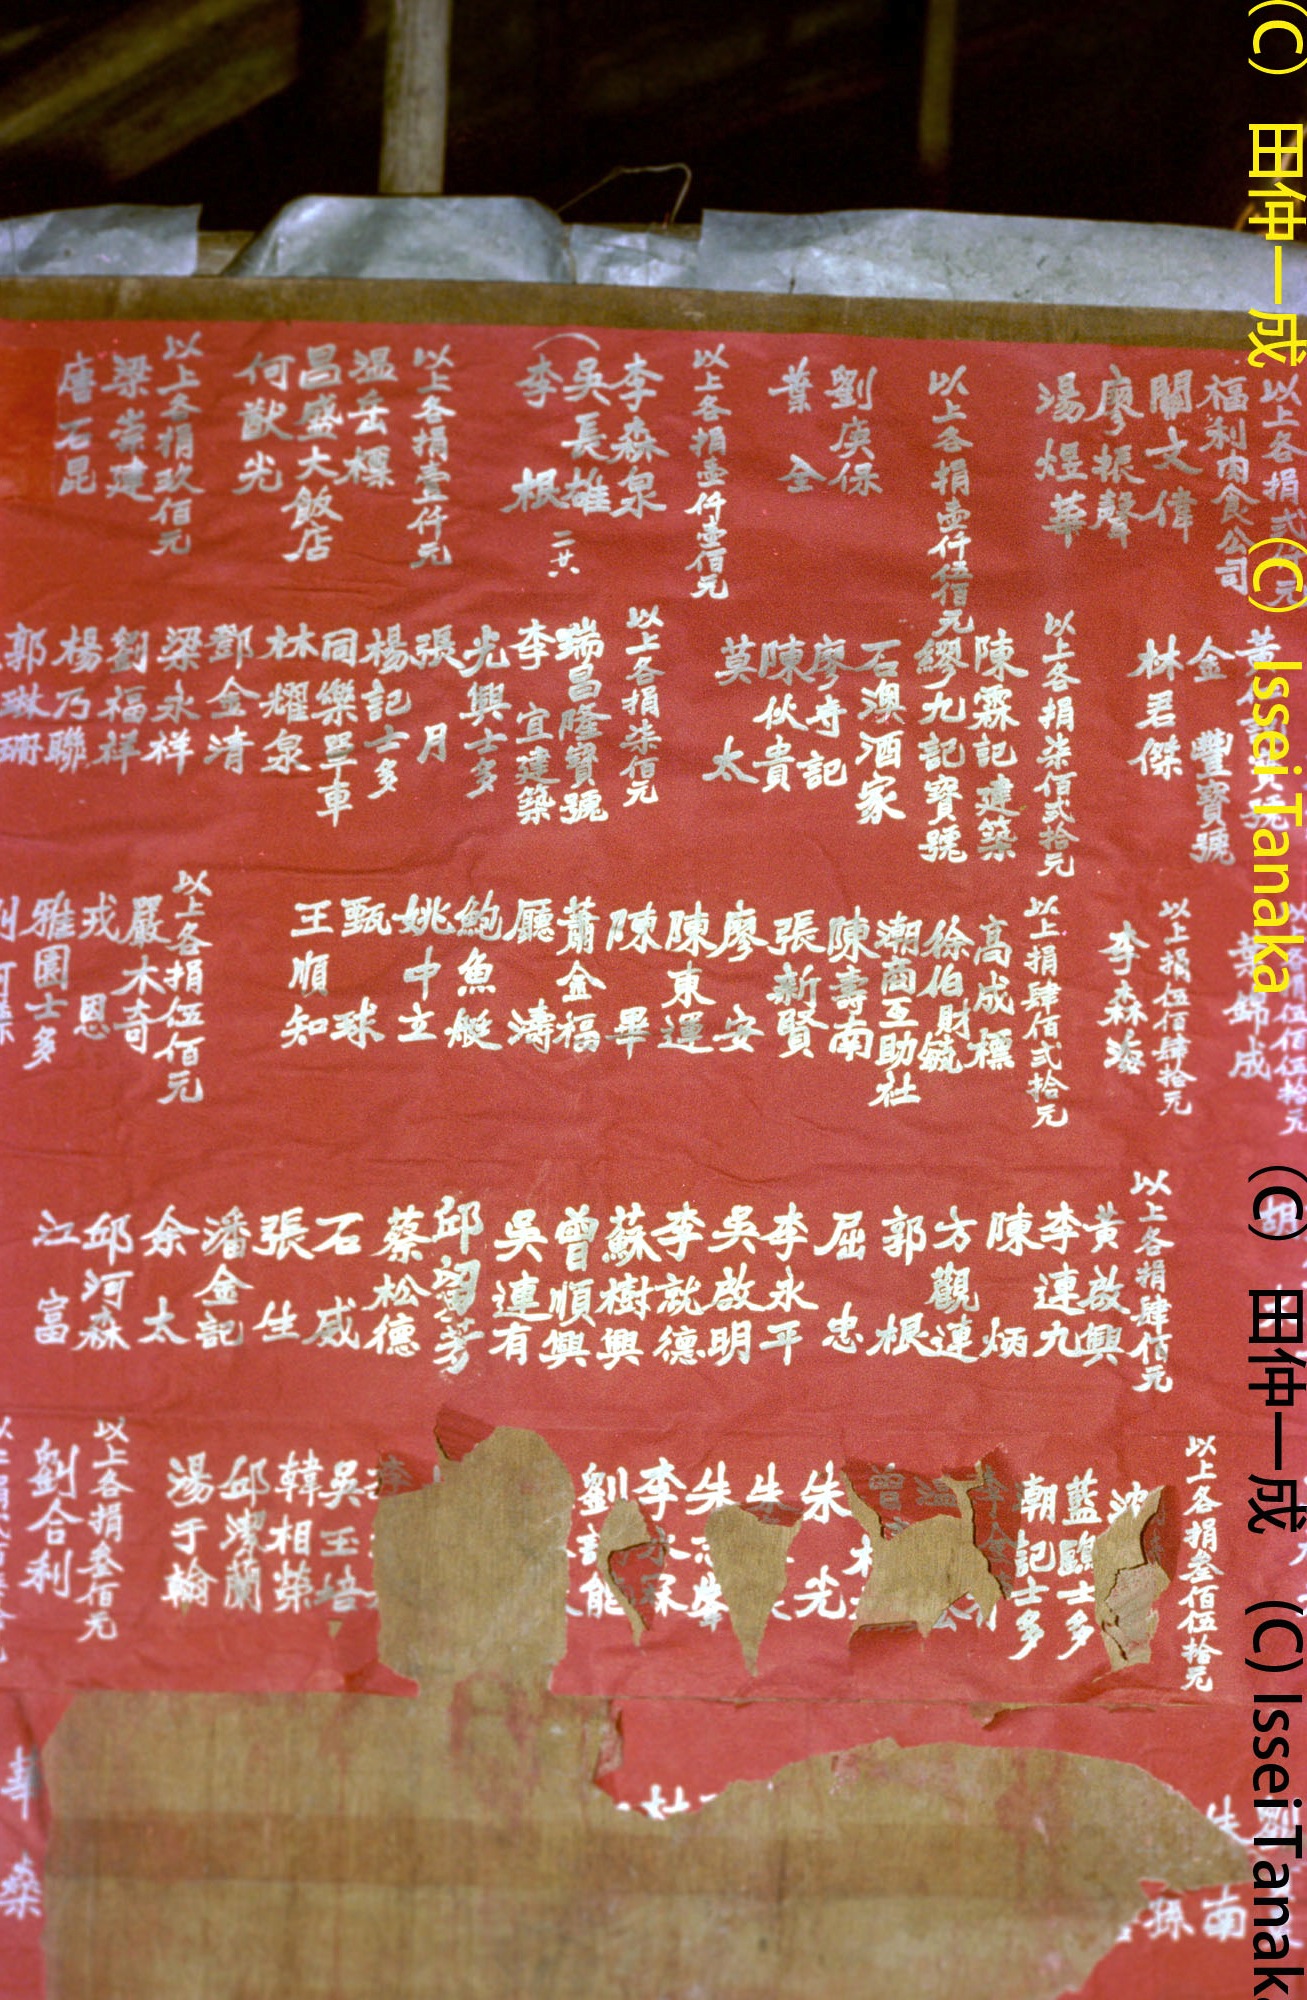 以上各捐弍仟元
福利肉食公司
關文偉
廖振聲
湯煌華
以上各捐壹仟伍佰元
劉庚保
葉全
以上各捐壹仟壹佰元
李森泉
吳長雄
李根
二卄八
以上各捐壹仟元
温岳標
昌盛大飯店
何猷光
以上各捐玖佰元
梁崇建
唐石昆
金豐寶號
林君傑
以上各捐柒佰弍拾元
陳霖記建築
繆九記寶號
石澳酒家
廖奇記
陳伙貴
莫太
以上各捐柒佰元
瑞昌隆寶號
李宜建築
光興士多
張月
楊記士多
同樂單車
林耀泉
鄧金清
梁永祥
劉福祥
楊乃聯
郭琳珊
伍佰伍拾元
葉錦成
以上捐伍佰肆拾元
李森海
以上各捐肆佰弍拾元
高成標
徐伯財毓
潮商互助社
陳壽南
張新賢
廖安
陳東運
陳畢
蕭金福
廳濤
鮑魚艇
姚中立
甄球
王順知
以上各捐伍佰元
嚴木奇
戎恩
雅園士多
以上各捐肆佰元
黃啟興
李連九
陳炳
方觀連
郭根
屈忠
李永平
吳啟明
李就德
蘇樹興
曾順興
吳連有
邱詔芳
蔡松德
石威
張生
潘金記
余太
邱河森
江富
以上各捐叁佰伍拾元
藍鷗士多
朝記士多
朱光
朱
李
劉 能
吳玉培
韓相榮
邱潔蘭
湯于翰
以上各捐叁佰元
劉合利
劉
朱
南
孫
華燊
(C) 田仲一成 (C) Issei Tanaka
(C) 田仲一成 (C) Issei Tanaka